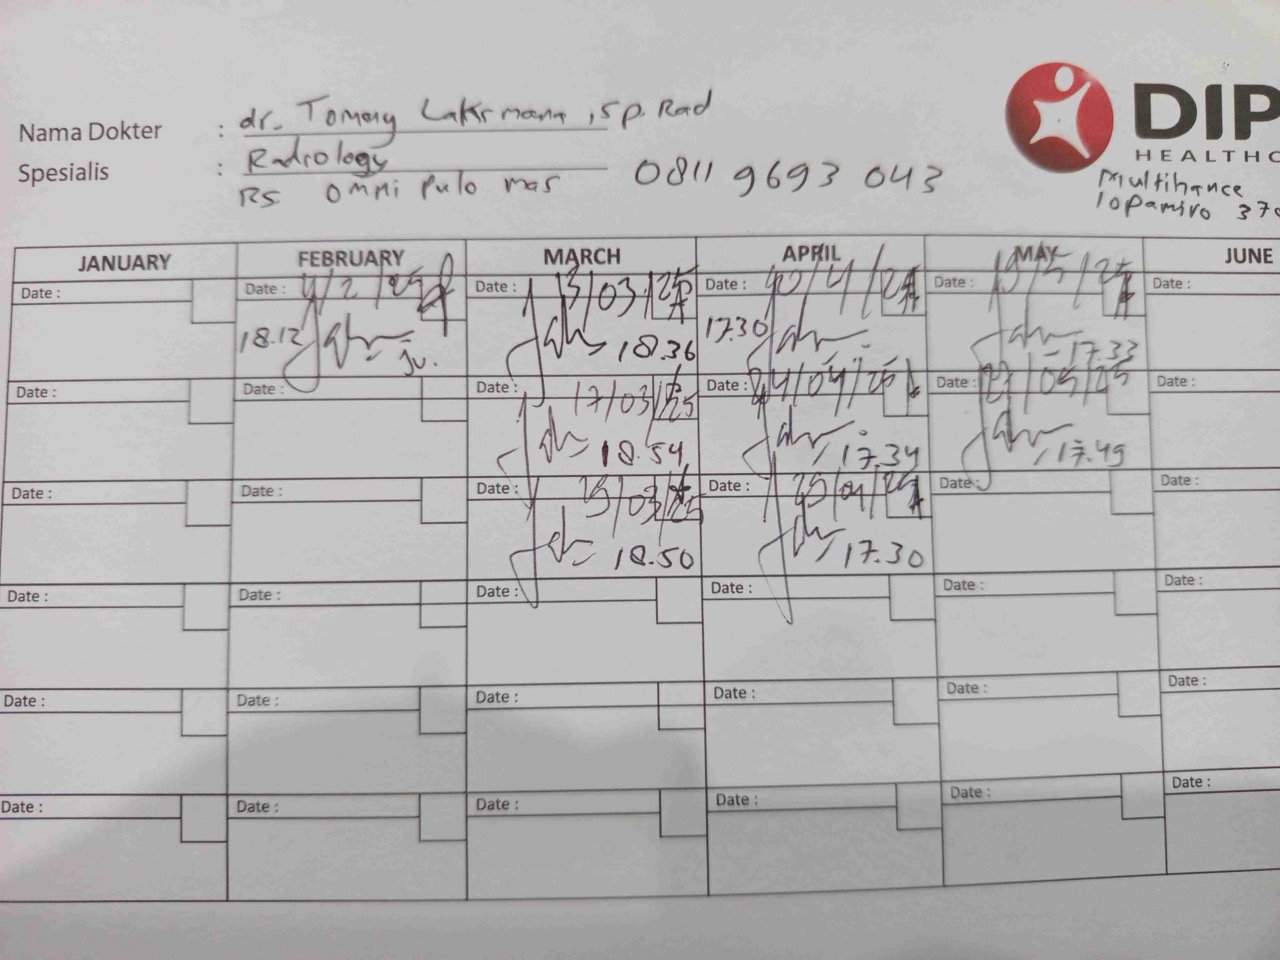 Nama Dokter : dr. Tommy Lakrmana, sp. Rad
Spesialis : Radiology
RS OMNI Pulo mas 0811 9693 043
DIP
HEALTHC
Multihance
Iopamiro 370
JANUARY FEBRUARY MARCH APRIL MAY JUNE
Date : Date : 4/2/25 Date : 13/03/25 Date : /4/25 Date : Date :
18.12 18.36 17.30 17.33
Date : Date : Date : 17/03/25 Date : 24/04/25 Date : /05/25 Date :
18.54 17.34 17.49
Date : Date : Date : /03/25 Date : 25/04/25 Date : Date :
18.50 17.30
Date : Date : Date : Date : Date : Date :
Date : Date : Date : Date : Date : Date :
Date : Date : Date : Date : Date : Date :